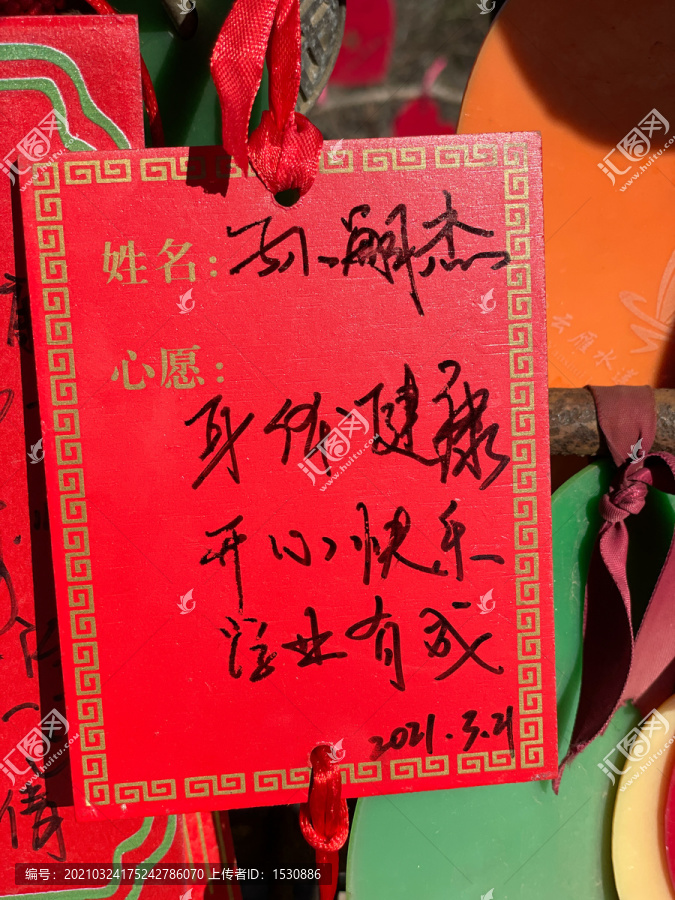 姓名：孙翩杰
心愿：
身体健康
开心快乐
学业有成
2021.3.21
云雁水漾
汇图网
www.huitu.com
编号：20210324175242786070 上传者ID：1530886